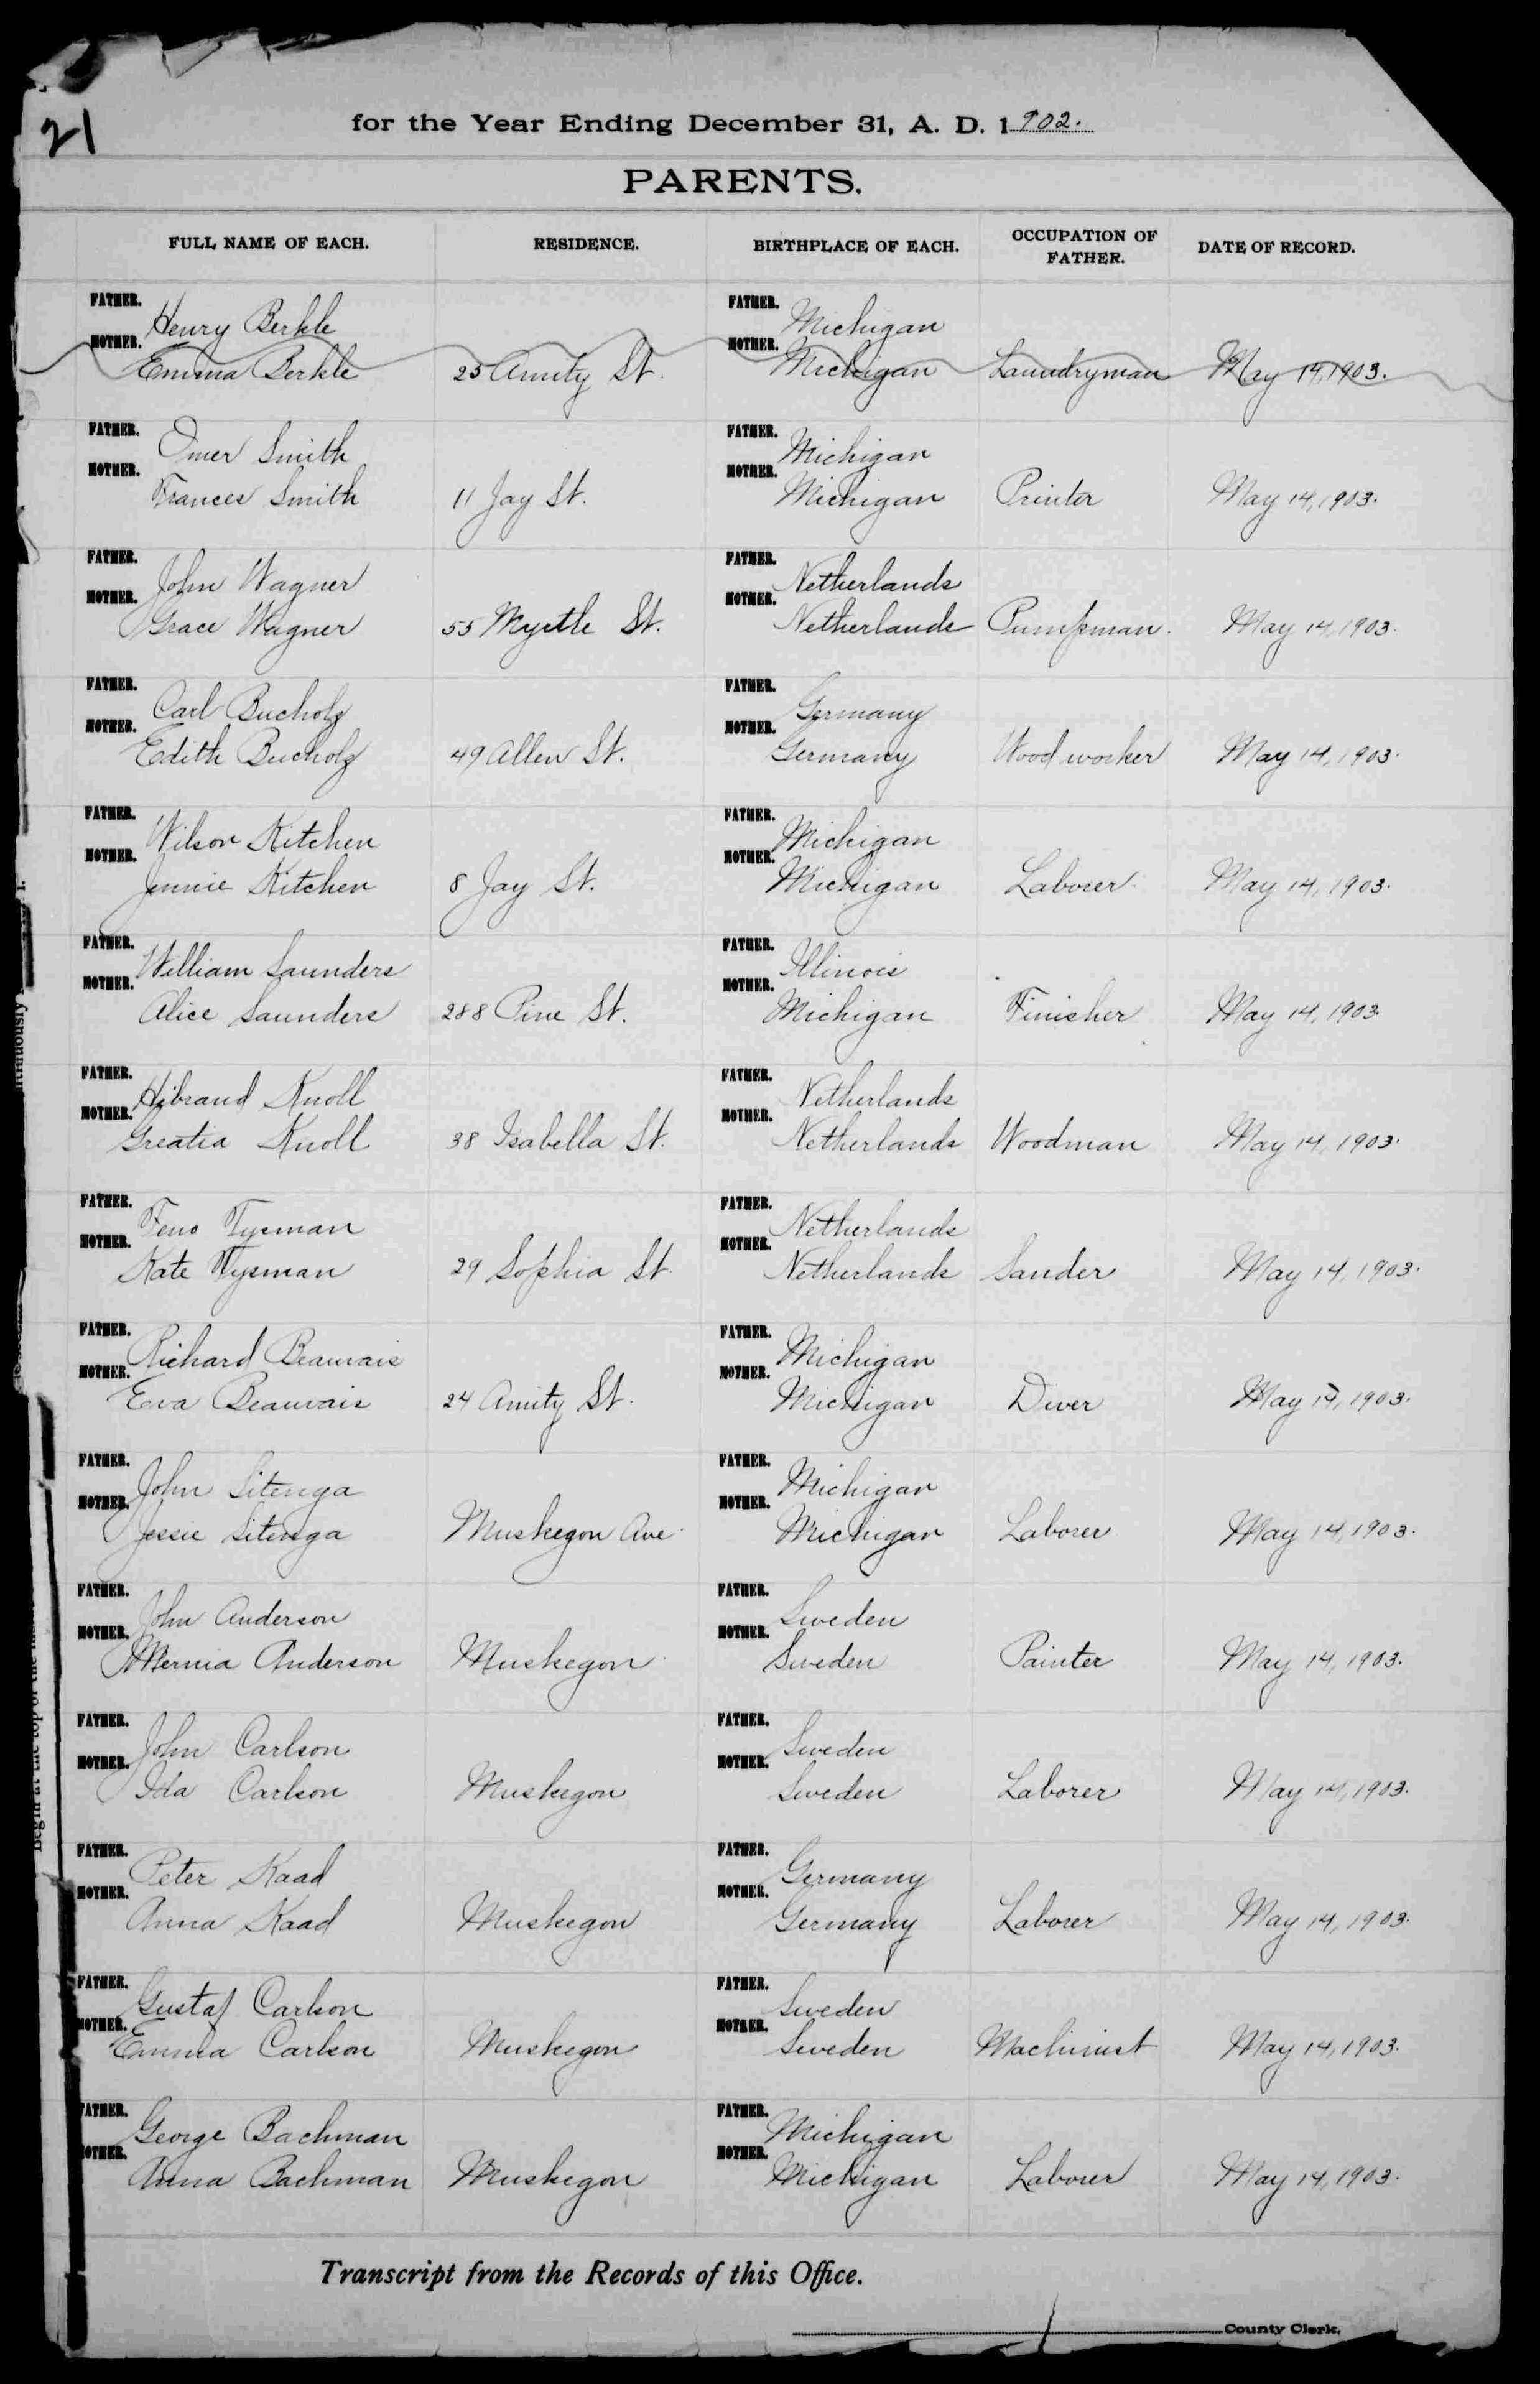 21
for the Year Ending December 31, A. D. 1902.
PARENTS.
FULL NAME OF EACH. RESIDENCE. BIRTHPLACE OF EACH. OCCUPATION OF FATHER. DATE OF RECORD.
FATHER. Henry Berkle FATHER. Michigan
MOTHER. Emma Berkle 25 Amity St. MOTHER. Michigan Laundryman May 14, 1903.
FATHER. Omer Smith FATHER. Michigan
MOTHER. Frances Smith 11 Jay St. MOTHER. Michigan Printer May 14, 1903.
FATHER. John Wagner FATHER. Netherlands
MOTHER. Grace Wagner 55 Myrtle St. MOTHER. Netherlands Pumpman. May 14, 1903.
FATHER. Carl Bucholz FATHER. Germany
MOTHER. Edith Bucholz 49 Allen St. MOTHER. Germany Wood worker May 14, 1903.
FATHER. Wilson Kitchen FATHER. Michigan
MOTHER. Jennie Kitchen 8 Jay St. MOTHER. Michigan Laborer May 14, 1903.
FATHER. William Saunders FATHER. Illinois
MOTHER. Alice Saunders 288 Pine St. MOTHER. Michigan Finisher May 14, 1903.
FATHER. Hibrand Knoll FATHER. Netherlands
MOTHER. Greatia Knoll 38 Isabella St. MOTHER. Netherlands Woodman May 14, 1903.
FATHER. Feno Tysman FATHER. Netherlands
MOTHER. Kate Tysman 29 Sophia St. MOTHER. Netherlands Sander May 14, 1903.
FATHER. Richard Beauvais FATHER. Michigan
MOTHER. Eva Beauvais 24 Amity St. MOTHER. Michigan Diver May 14, 1903.
FATHER. John Sitenga FATHER. Michigan
MOTHER. Jessie Sitenga Muskegon Ave. MOTHER. Michigan Laborer May 14, 1903.
FATHER. John Anderson FATHER. Sweden
MOTHER. Anderson Muskegon MOTHER. Sweden Painter May 14, 1903.
FATHER. John Carlson FATHER. Sweden
MOTHER. Ida Carlson Muskegon MOTHER. Sweden Laborer May 14, 1903.
FATHER. Peter Kaad FATHER. Germany
MOTHER. Anna Kaad Muskegon MOTHER. Germany Laborer May 14, 1903.
FATHER. Gustaf Carlson FATHER. Sweden
MOTHER. Emma Carlson Muskegon MOTHER. Sweden Machinist May 14, 1903.
FATHER. George Bachman FATHER. Michigan
MOTHER. Anna Bachman Muskegon MOTHER. Michigan Laborer May 14, 1903.
Transcript from the Records of this Office.
County Clerk.